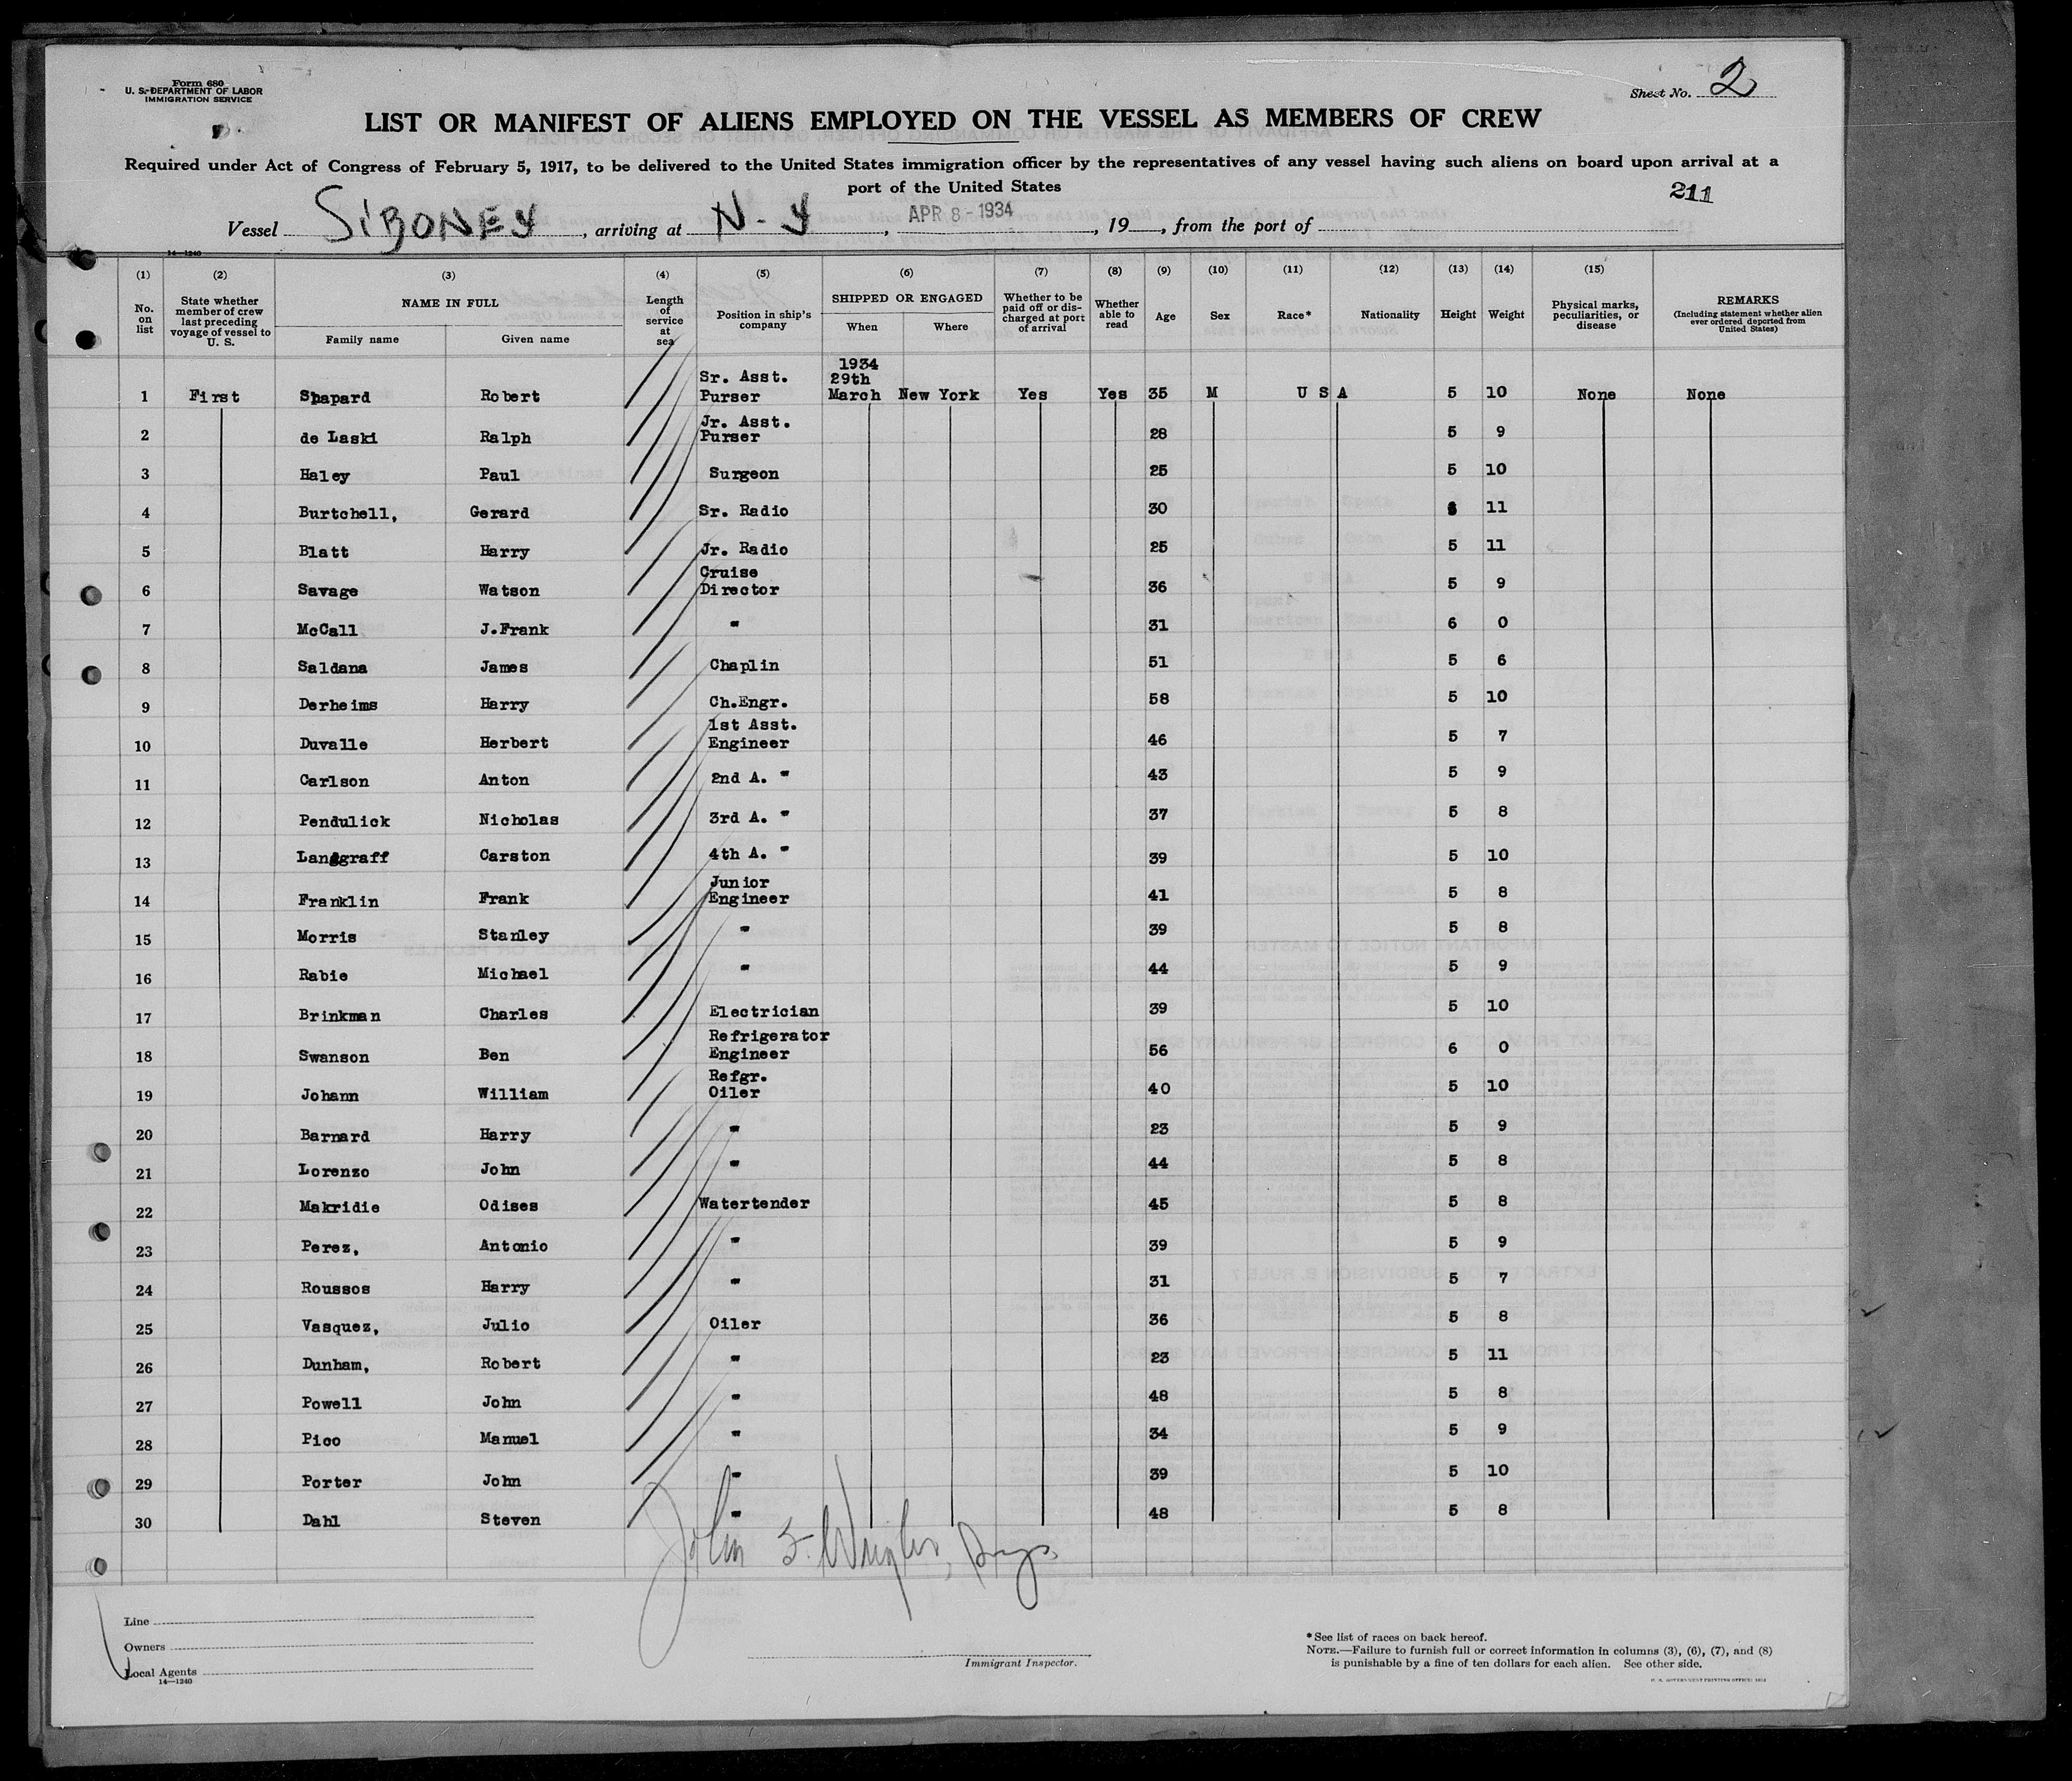 Form 680
U. S. DEPARTMENT OF LABOR
IMMIGRATION SERVICE
Sheet No. 2
LIST OR MANIFEST OF ALIENS EMPLOYED ON THE VESSEL AS MEMBERS OF CREW
Required under Act of Congress of February 5, 1917, to be delivered to the United States immigration officer by the representatives of any vessel having such aliens on board upon arrival at a
port of the United States
211
Vessel SIBONEY, arriving at N-Y, APR 8-1934, 19, from the port of
14—1240
(1) (2) (3) (4) (5) (6) (7) (8) (9) (10) (11) (12) (13) (14) (15)
No. on list
State whether member of crew last preceding voyage of vessel to U. S.
NAME IN FULL
Family name Given name
Length of service at sea
Position in ship's company
SHIPPED OR ENGAGED
When Where
Whether to be paid off or discharged at port of arrival
Whether able to read
Age
Sex
Race*
Nationality
Height
Weight
Physical marks, peculiarities, or disease
REMARKS
(Including statement whether alien ever ordered deported from United States)
1 First Shapard Robert Sr. Asst. Purser 1934 29th March New York Yes Yes 35 M U S A 5 10 None None
2 de Laski Ralph Jr. Asst. Purser 28 5 9
3 Haley Paul Surgeon 25 5 10
4 Burtchell, Gerard Sr. Radio 30 11
5 Blatt Harry Jr. Radio 25 5 11
6 Savage Watson Cruise Director 36 5 9
7 McCall J.Frank " 31 6 0
8 Saldana James Chaplin 51 5 6
9 Derheims Harry Ch.Engr. 58 5 10
10 Duvalle Herbert 1st Asst. Engineer 46 5 7
11 Carlson Anton 2nd A. " 43 5 9
12 Pendulick Nicholas 3rd A. " 37 5 8
13 Langgraff Carston 4th A. " 39 5 10
14 Franklin Frank Junior Engineer 41 5 8
15 Morris Stanley " 39 5 8
16 Rabie Michael " 44 5 9
17 Brinkman Charles Electrician 39 5 10
18 Swanson Ben Refrigerator Engineer 56 6 0
19 Johann William Refgr. Oiler 40 5 10
20 Barnard Harry " 23 5 9
21 Lorenzo John " 44 5 8
22 Makridie Odises Watertender 45 5 8
23 Perez, Antonio " 39 5 9
24 Roussos Harry " 31 5 7
25 Vasquez, Julio Oiler 36 5 8
26 Dunham, Robert " 23 5 11
27 Powell John " 48 5 8
28 Pico Manuel " 34 5 9
29 Porter John " 39 5 10
30 Dahl Steven " 48 5 8
John
Line
Owners
Local Agents
14—1240
Immigrant Inspector.
*See list of races on back hereof.
NOTE.—Failure to furnish full or correct information in columns (3), (6), (7), and (8)
is punishable by a fine of ten dollars for each alien. See other side.